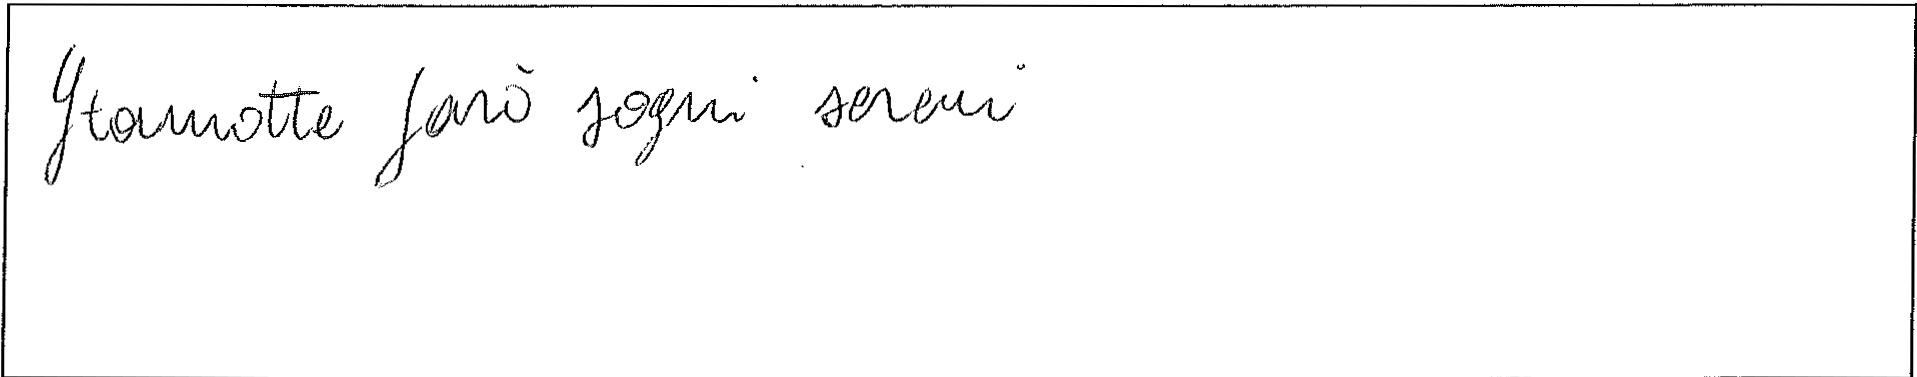 Stanotte farò sogni sereni